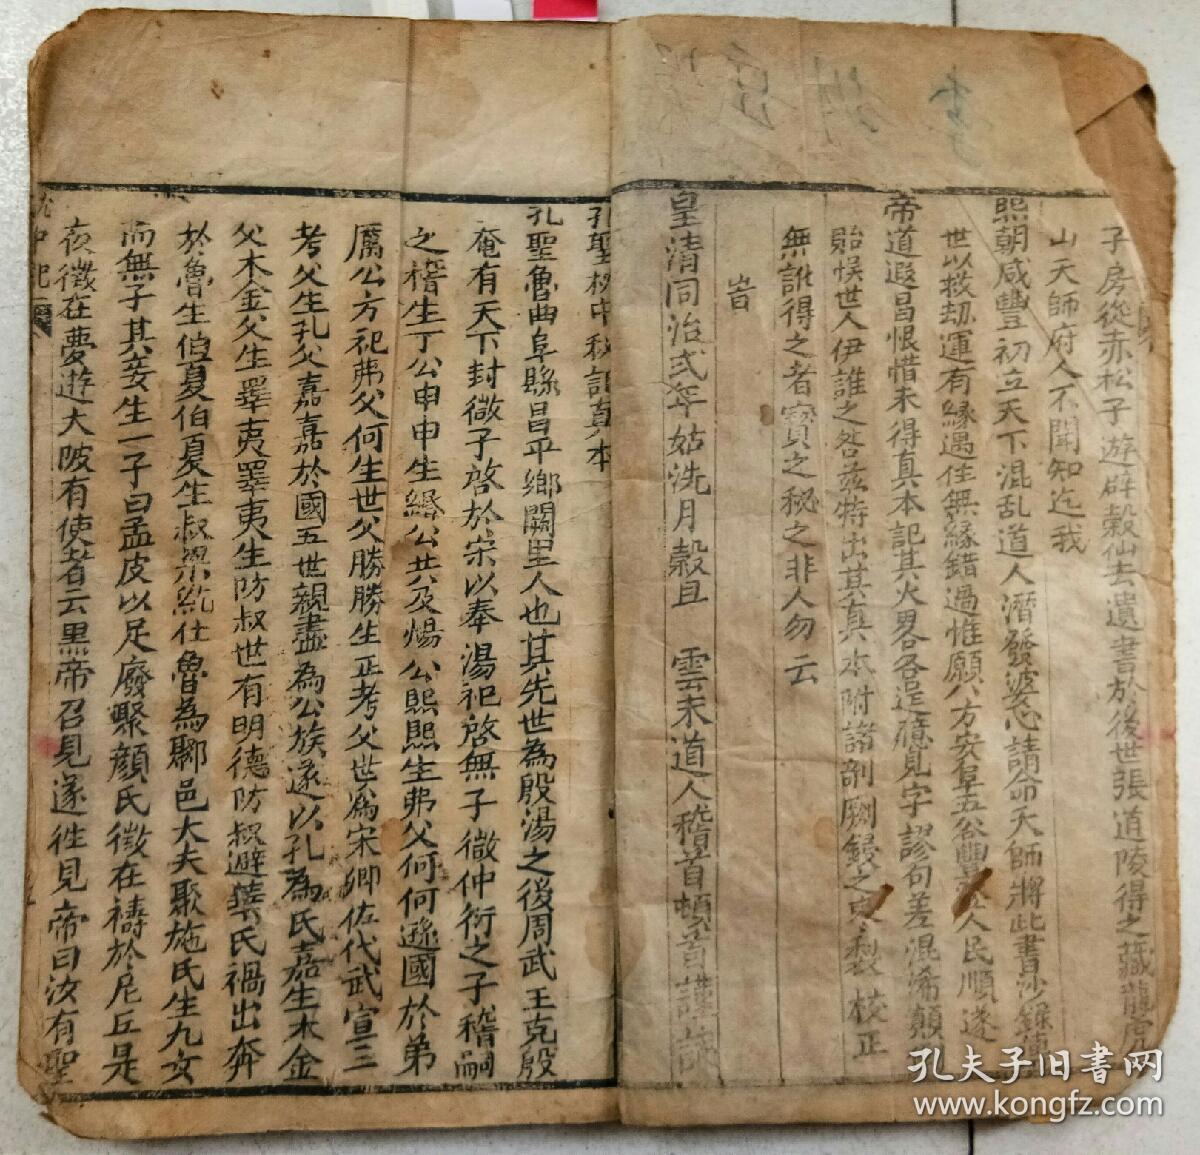 子房從赤松子遊辟穀仙去遺書於後世張道陵得之藏龍虎
山天師府人不聞知迄我
熙朝咸豐初立天下混乱道人潛發婆心請命天師將此書沙錄傳
世以救劫運有緣遇住無緣錯過惟願八方安阜五谷豐登人民順遂
帝道遐昌恨惜未得真本記其大畧各逞臆見字謬句差混淆顛
貽悞世人伊誰之咎茲特出其真本附諸剞劂鋟之東梨校正
無訛得之者寶之秘之非人勿云
旹
皇清同治弍年姑洗月穀旦 雲未道人稽首頓首謹識
孔聖枕中秘記真本
孔聖魯曲阜縣昌平鄉闕里人也其先世為殷湯之後周武王克殷
奄有天下封微子啓於宋以奉湯祀啓無子微仲衍之子稽嗣
之稽生丁公申申生緡公共及煬公熙熙生弗父何何遜國於弟
厲公方祀弗父何生世父勝勝生正考父世為宋卿佐代武宣三
考父生孔父嘉嘉於國五世親盡為公族遂以孔為氏嘉生木金
父木金父生睪夷睪夷生防叔世有明德防叔避華氏禍出奔
於魯生伯夏伯夏生叔梁紇仕魯為鄹邑大夫聚施氏生九女
而無子其妾生一子曰孟皮以足廢聚顏氏徵在禱於尼丘是
夜徵在夢遊大陂有使者云黑帝召見遂徃見帝曰汝有聖
枕中記
孔夫子旧书网
www.kongfz.com